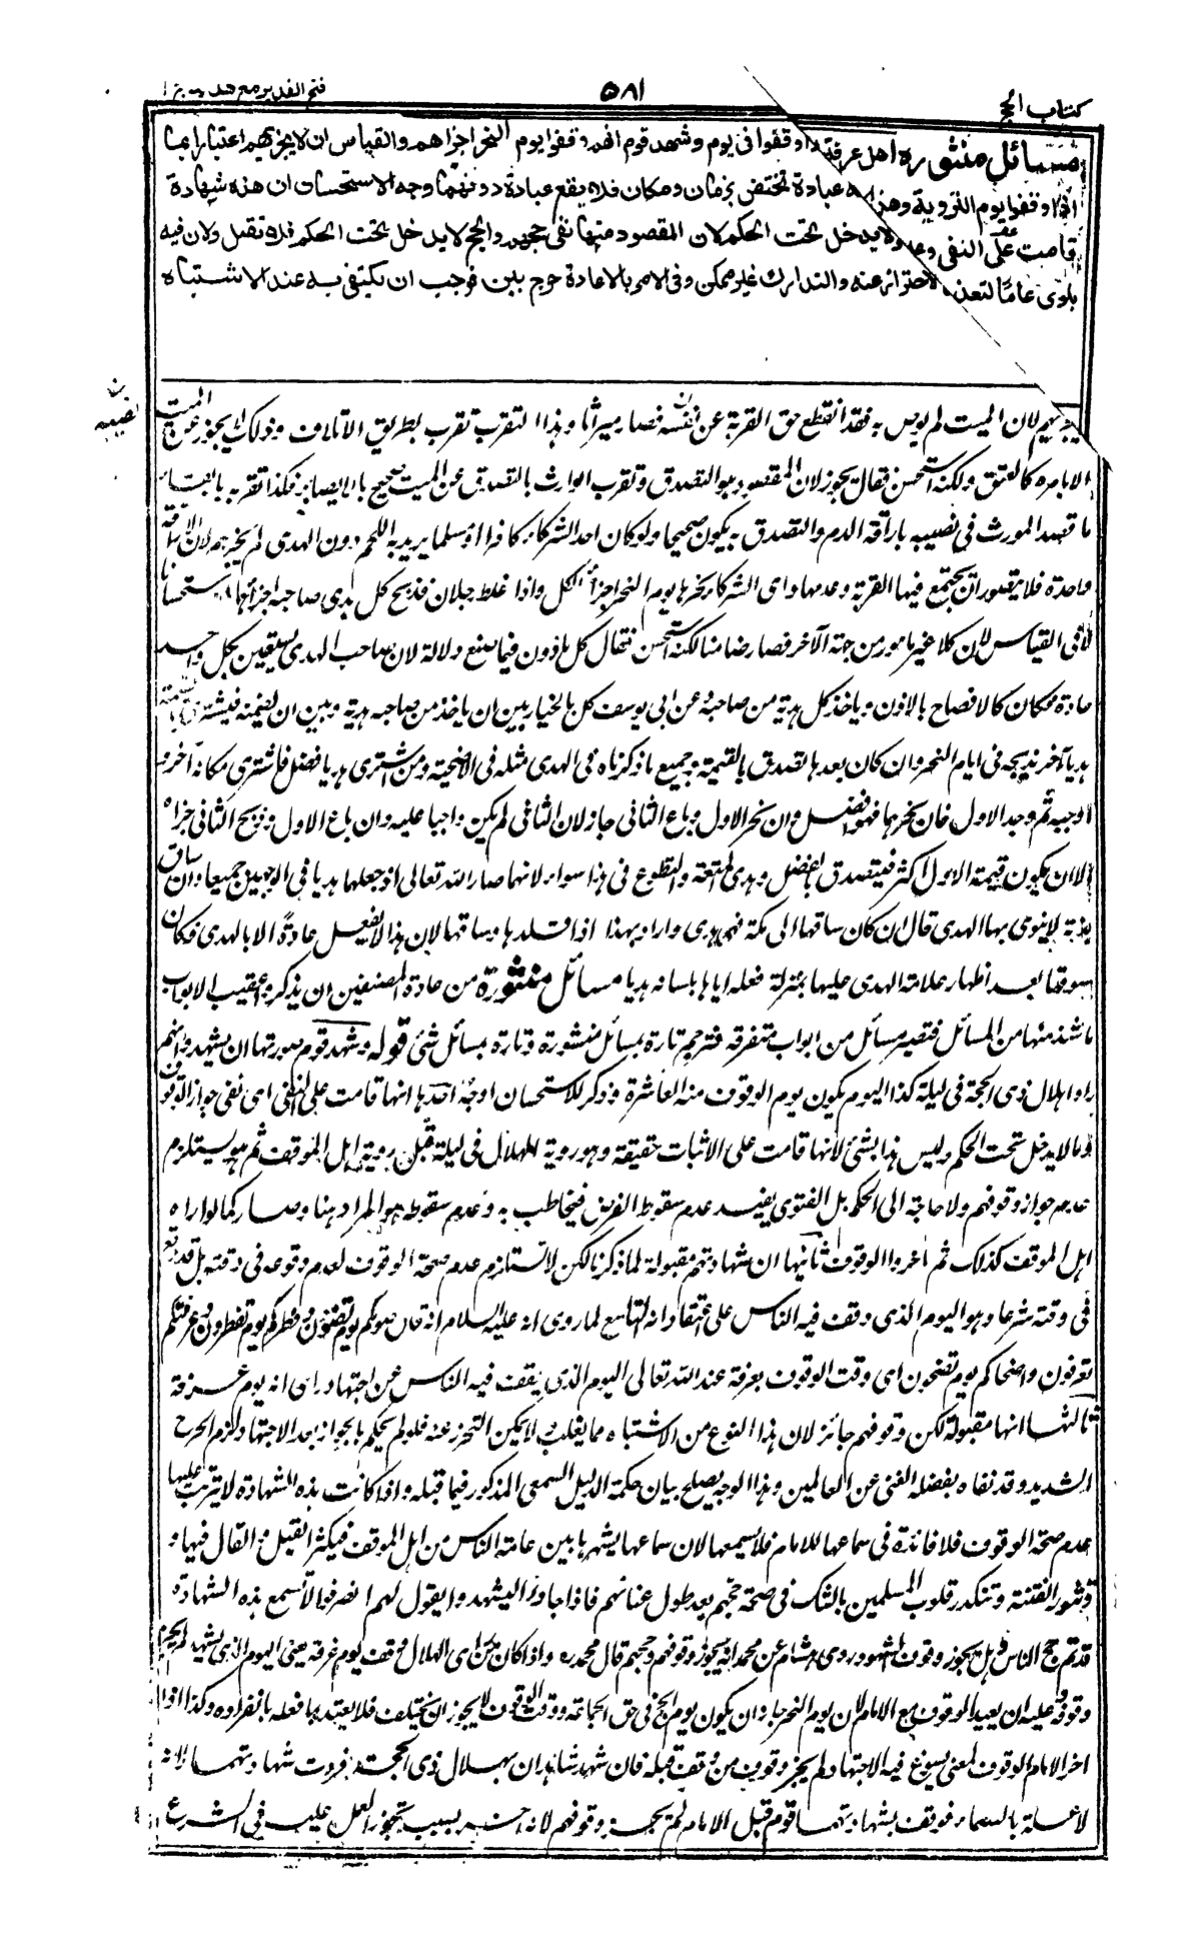 كتاب الحج
٥٨١
فتح القدير مع هدايه ج ١
مسائل منثوره اهل عرفة اذا وقفوا فى يوم وشهد قوم انهم وقفوا يوم النحر اجزاهم والقياس ان لا يجزيهم اعتبارا بما
اذا وقفوا يوم التروية وهذا لانه عبادة تختص بزمان ومكان فلا يقع عبادة دونهما وجه الاستحسان ان هذه شهادة
قامت على النفى وعلى ولا يدخل تحت الحكم لان المقصود منها نفى حجهم والحج لا يدخل تحت الحكم فلا تقبل ولان فيه
بلوى عاما لتعذر الاحتراز عنه والتدارك غير ممكن وفى الامر بالاعادة حرج بين فوجب ان يكتفى به عند الاشتباه
يجزيهم لان الميت لم يوص به فقد انقطع حق القربة عن نفسه فصار ميراثا وهذا التقرب تقرب بطريق الاتلاف وذلك لا يجوز عن الميت
الا بامره كالعتق ولكنه استحسن فقال يجوز لان المقصود هو التصدق وتقرب الوارث بالتصدق عن الميت صحيح بلا ايصاء فكذا تقربه بابقاء
ما قصد المورث فى نصيبه باراقة الدم والتصدق به يكون صحيحا ولو كان احد الشركاء كافرا او مسلما يريد به اللحم دون الهدى لم يجزهم لان الاراقة
واحدة فلا يتصور ان يجتمع فيها القربة وعدمها واى الشركاء نحرها يوم النحر اجزأ الكل واذا غلط رجلان فذبح كل هدى صاحبه اجزأهما استحسانا
لا فى القياس لان كلا غير مامور من جهة الآخر فصار ضامنا لكنه استحسن فقال كل ماذون فيما صنع دلالة لان صاحب الهدى يستعين بكل واحد
عادة فكان كالافصاح بالاذن وياخذ كل هديه من صاحبه وعن ابى يوسف كل بالخيار بين ان ياخذ من صاحبه هديه وبين ان يضمنه فيشترى بالقيمة
هديا آخر يذبحه فى ايام النحر وان كان بعدها تصدق بالقيمة وجميع ما ذكرناه فى الهدى مثله فى الاضحية ومن اشترى هديا فضل فاشترى مكانه آخر و
اوجبه ثم وجد الاول فان نحرهما فهو افضل وان نحر الاول وباع الثانى جاز لان الثانى لم يكن واجبا عليه وان باع الاول وذبح الثانى اجزأه
الا ان يكون قيمة الاول اكثر فيتصدق بالفضل وهدى المتعة والتطوع فى هذا سواء لانهما صارا لله تعالى اذ جعلها هديا فى الوجهين جميعا وان ساق
بدنة لا ينوى بها الهدى قال ان كان ساقها الى مكة فهى هدى واراد بهذا اذا قلدها وساقها لان هذا لا يفعل عادة الا بالهدى فكان
سوقها بعد اظهار علامة الهدى عليها بمنزلة جعله اياها بلسانه هديا مسائل منثورة من عادة المصنفين ان يذكروا عقيب الابواب
ما شذ منها من المسائل فتصير مسائل من ابواب متفرقة فتترجم تارة بمسائل منثورة وتارة بمسائل شتى قوله وشهد قوم صورتها ان يشهدوا انهم
راوا هلال ذى الحجة فى ليلة كذا اليوم يكون يوم الوقوف منه العاشرة وذكر للاستحسان اوجه احدها انها قامت على النفى اى نفى جواز الوقوف
وما لا يدخل تحت الحكم وليس هذا بشئ لانها قامت على الاثبات حقيقة وهو روية الهلال فى ليلة قبل روية اهل الموقف ثم هو يستلزم
عدم جواز وقوفهم ولا حاجة الى الحكم بل الفتوى يفيد عدم سقوط الفرض فيخاطب به وعدم سقوطه هو المراد هنا وصار كما لو راه
اهل الموقف كذلك ثم اخروا الوقوف ثانيها ان شهادتهم مقبولة لما ذكرنا لكن لا تستلزم عدم صحة الوقوف لعدم وقوعه فى وقته بل قد وقع
فى وقته شرعا وهو اليوم الذى وقف فيه الناس على اعتقاد انه التاسع لما روى انه عليه السلام انه قال صومكم يوم تصومون وفطركم يوم تفطرون وعرفتكم يوم
تعرفون واضحاكم يوم تضحون اى وقت الوقوف بعرفة عند الله تعالى اليوم الذى يقف فيه الناس عن اجتهاد وراى انه يوم عرفة
ثالثها انها مقبولة لكن وقوفهم جائز لان هذا النوع من الاشتباه مما يغلب ولا يمكن التحرز عنه فلو لم يحكم بالجواز بعد الاجتهاد لزم الحرج
الشديد وقد نفاه بفضله الغنى عن العالمين وهذا الوجه يصلح بيان حكمة الدليل السمعى المذكور فيما قبله واذا كانت هذه الشهادة لا يترتب عليها
عدم صحة الوقوف فلا فائدة فى سماعها للامام فلا يسمعها لان سماعها يشهرها بين عامة الناس من اهل الموقف فيكثر القيل والقال فيها و
تثور الفتنة وتتكدر قلوب المسلمين بالشك فى صحة حجهم بعد طول عنائهم فاذا جاؤا ليشهدوا يقول لهم انصرفوا لا تسمع هذه الشهادة
قد تم حج الناس وهل يجوز وقوف الشهود روى هشام عن محمد انه يجوز وقوفهم وحجهم قال محمد ره واذا كان من راى الهلال وقف يوم عرفة يعنى اليوم الذى يشهد به لم يجز
وقوفه وعليه ان يعيد الوقوف مع الامام لان يوم النحر جاز ان يكون يوم الحج فى حق الجماعة ووقت الوقوف لا يجوز ان يختلف فلا يعتد بما فعله بانفراده وكذا اذا
اخر الامام الوقوف لمعنى يسوغ فيه الاجتهاد لم يجز وقوف من وقف قبله فان شهد شاهدان بهلال ذى الحجة فردت شهادتهما لانه
لا علة بالسماء فوقف بشهادتهما قوم قبل الامام لم يجز وقوفهم لانه اخر بسبب يجوز العمل عليه فى الشرع